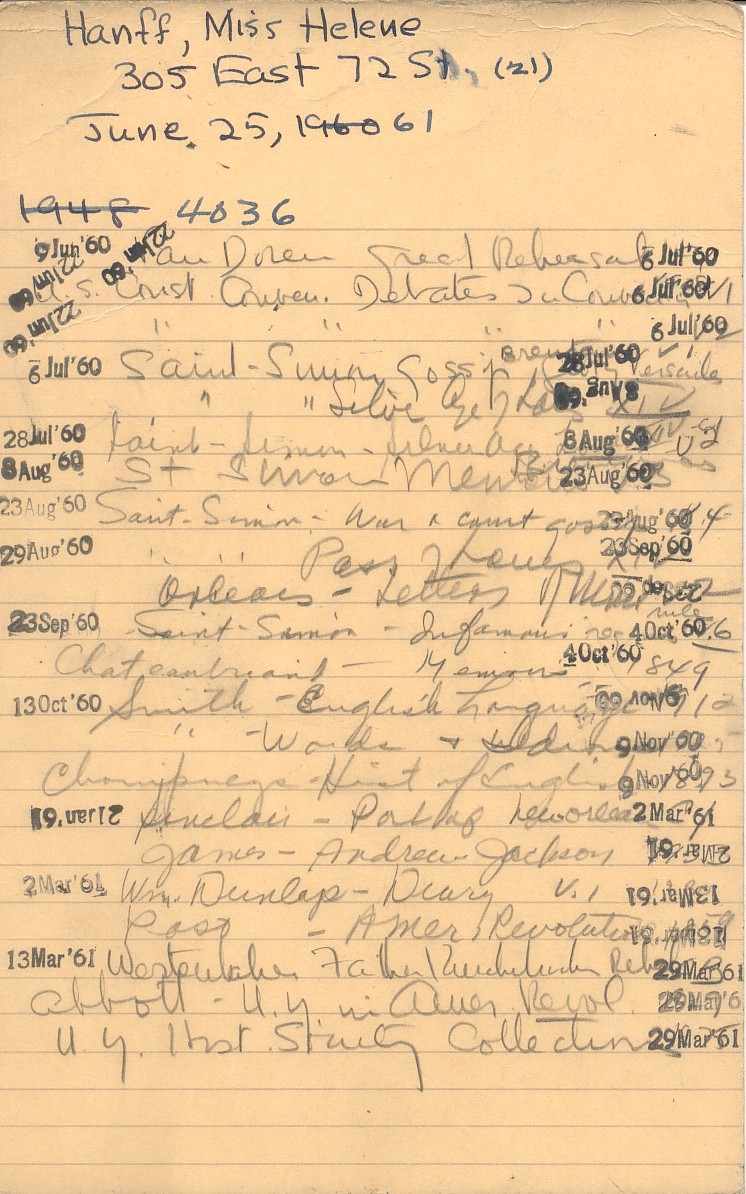 Hanff, Miss Helene
305 East 72 St. (21)
June 25, 1960 61
1948 4036
9 Jun'60 22 Jun'60 Van Doren Great Rehearsal 6 Jul'60
22 Jun'60 U.S. Const. Conven. Debates in 6 Jul'60 V1
22 Jun'60 " " " " 6 Jul'60 2
6 Jul'60 Saint-Simon Gossip 28 Jul'60 Versailles
" " Silver Age of Louis 8 Aug'60 XIV
28 Jul'60 Saint-Simon - Silver Age 8 Aug'60 XIV v 2
8 Aug'60 St Simon Memoirs 23 Aug'60
23 Aug'60 Saint-Simon - War & court gossip 23 Aug'60 v4
29 Aug'60 " " Pass of Louis XIV 23 Sep'60
Orleans - Letters of
23 Sep'60 Saint-Simon - Infamous 4 Oct'60 v.6
Chateaubriand - Memoirs 4 Oct'60 1849
13 Oct'60 Smith - English Language 09 Nov'60 1912
" - Words & Idioms 9 Nov'60
Champneys - Hist of English 9 Nov'60 1893
21 Jan'61 Sinclair - Port of New Orleans 2 Mar'61
James - Andrew Jackson 2 Mar'61
2 Mar'61 Wm. Dunlap - Diary V.1 13 Mar'61
Post - Amer. Revolution 13 Mar'61 1959
13 Mar'61 Wertenbaker Father Knickerbocker Rebels 29 Mar'61
Abbott - N.Y. in Amer Revol. 29 Mar'61
N.Y. Hist. Society Collections 29 Mar'61